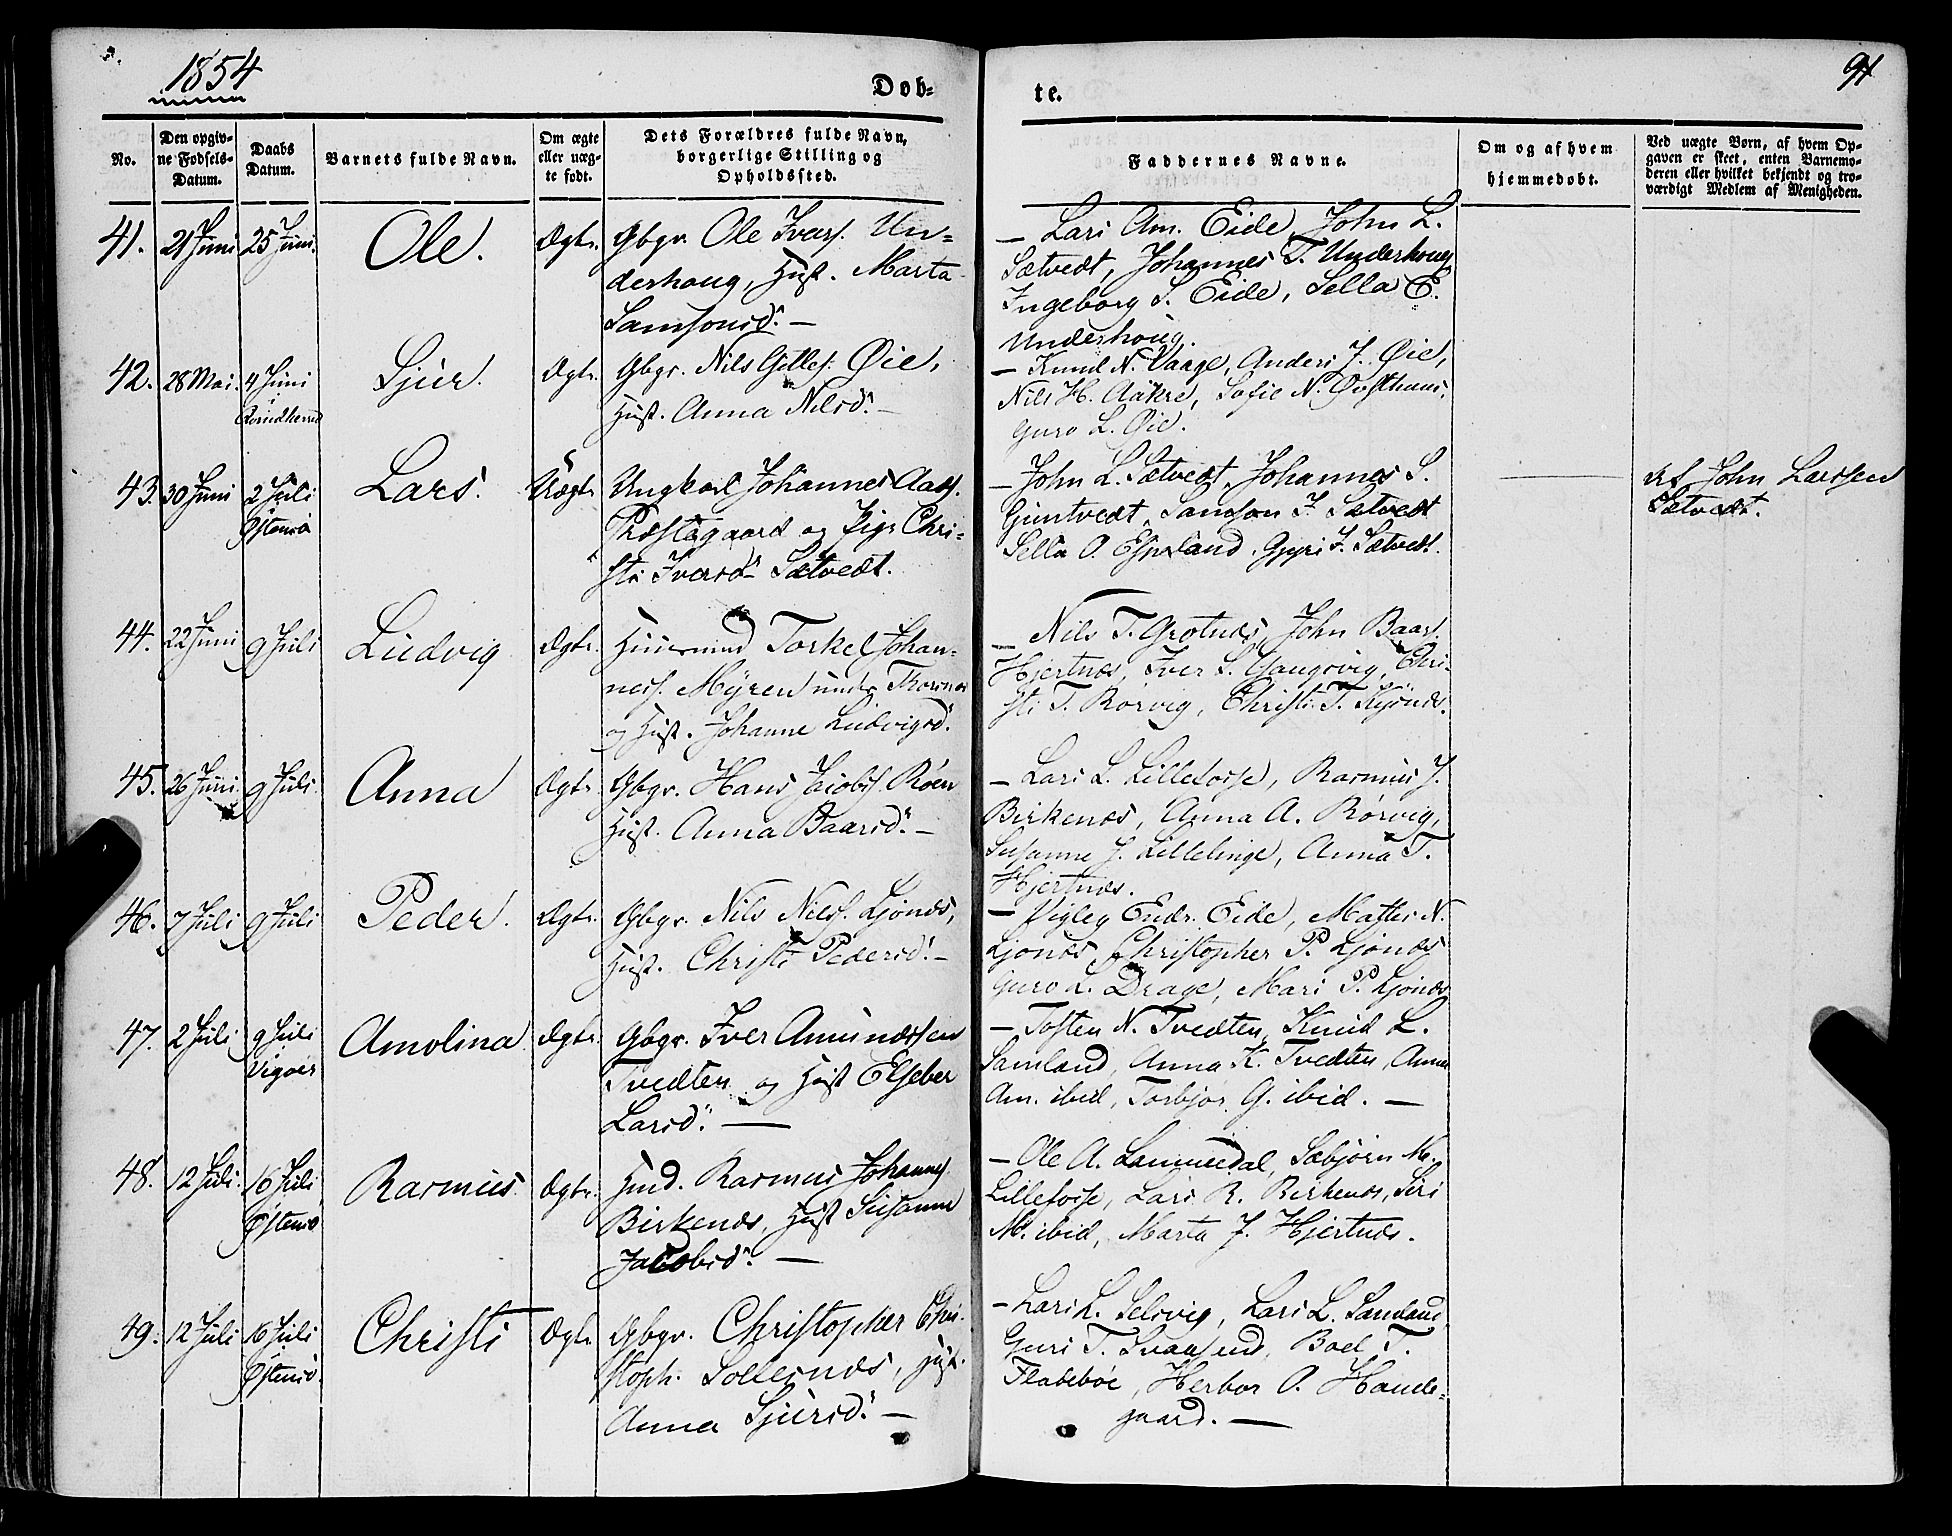 1854
Døb-
te.
91
No.
Den opgiv-
ne Fødsels-
Datum.
Daabs
Datum.
Barnets fulde Navn.
Om ægte
eller uæg-
te født.
Dets Forældres fulde Navn,
borgerlige Stilling og
Opholdssted.
Faddernes Navne.
Om og af hvem
hjemmedøbt.
Ved uægte Børn, af hvem Op-
gaven er skeet, enten Barnemo-
deren eller hvilket bekjendt og tro-
værdigt Medlem af Menigheden.
41. 21 Juni 25 Juni. Ole. Ægte. Gbgr. Ole Ivers. Un-
derhoug, Hust. Marta
Samsonsd. —
— Lars Am. Eide, John L.
Sætvedt, Johannes T. Underhoug
Ingeborg S. Eide, Sella E.
Underhoug.
42. 28 Mai. 4 Juni Sjur. Ægte. Gbgr. Nils Gilles. Øie,
Hust. Anna Nilsd. —
— Knud N. Vaage, Anders J. Øie,
Nils H. Aakre, Sofie N.
Guro L. Øie.
43. 30 Juni 2 Juli Lars. Uægte Ungkarl Johannes Aas.
Østensø
Præstegaard og Pige Chri-
sti Iversd. Sætvedt.
— John L. Sætvedt, Johannes S.
Guntvedt, Samson J. Sætvedt
Sella O. Espeland, Gyri I. Sætvedt.
Af John Larssen
Sætvedt.
44. 22 Juni 9 Juli Ludvig Ægte. Huusmand Torkel Johan-
ness. Myren under
og Hust. Johanne Ludvigsd.
— Nils T. Grotnæs, John Baars.
Hjertnæs, Iver L. Gangsvig, Chri-
sti T. Rørvig, Christi T.
45. 26 Juni. 9 Juli. Anna Ægte. Gbgr. Hans Jacobs. Røen
Hust. Anna Baarsd. —
— Lars L. Lilletosse, Rasmus J.
Birkenæs, Anna A. Rørvig,
Susanne J. Lillelinge, Anna T.
Hjertnæs.
46. 7 Juli 9 Juli Peder. Ægte. Gbgr. Nils Nils. Ljonæs,
Hust. Christi Pedersd. —
— Vigleg Endr. Eide, Mathis N.
Ljonæs, Christopher P. Ljonæs
Guro L. Drage, Mari P. Ljonæs
47. 2 Juli 9 Juli Amolina Ægte. Gbgr. Iver Amundssen
Vigøer
Tvedten og Hust Elseber
Larsd. —
— Tosten N. Tvedten, Knud L.
Samland, Anna K. Tvedten, Anna
Am. ibid, Torbjør G. ibid. —
48. 12 Juli. 16 Juli Rasmus Ægte. Hmd. Rasmus Johannes.
Østensø
Birkenæs, Hust Susanne
Jacobsd. —
— Ole A. Lammedal, Sæbjørn M.
Lilletosse, Lars R. Birkenæs, Siri
M. ibid, Marta J. Hjertnæs.
49. 12 Juli 16 Juli Christi Ægte Gbgr. Christopher Chri-
Østensø.
stoph. Sollesnæs, Hust.
Anna Sjursd. —
— Lars L. Selsvig, Lars L. Samland
Guri T. Svaasand, Boel T.
Flatebøe, Herbor O. Hande-
gaard. —